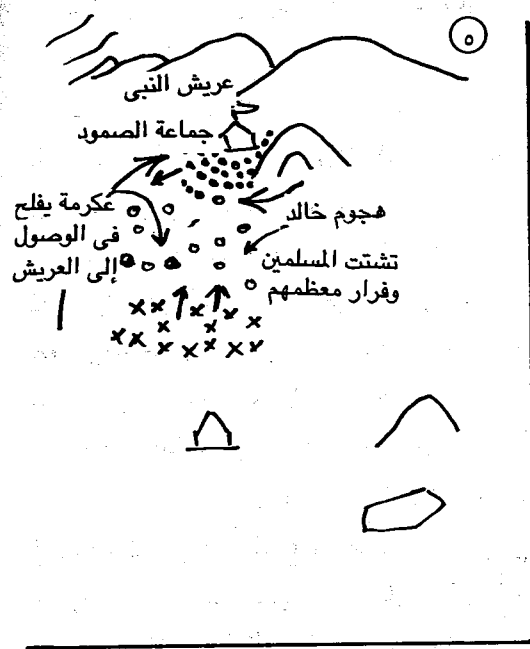 ٥
عريش النبى
جماعة الصمود
عكرمة يفلح
فى الوصول
إلى العريش
هجوم خالد
تشتت المسلمين
وفرار معظمهم